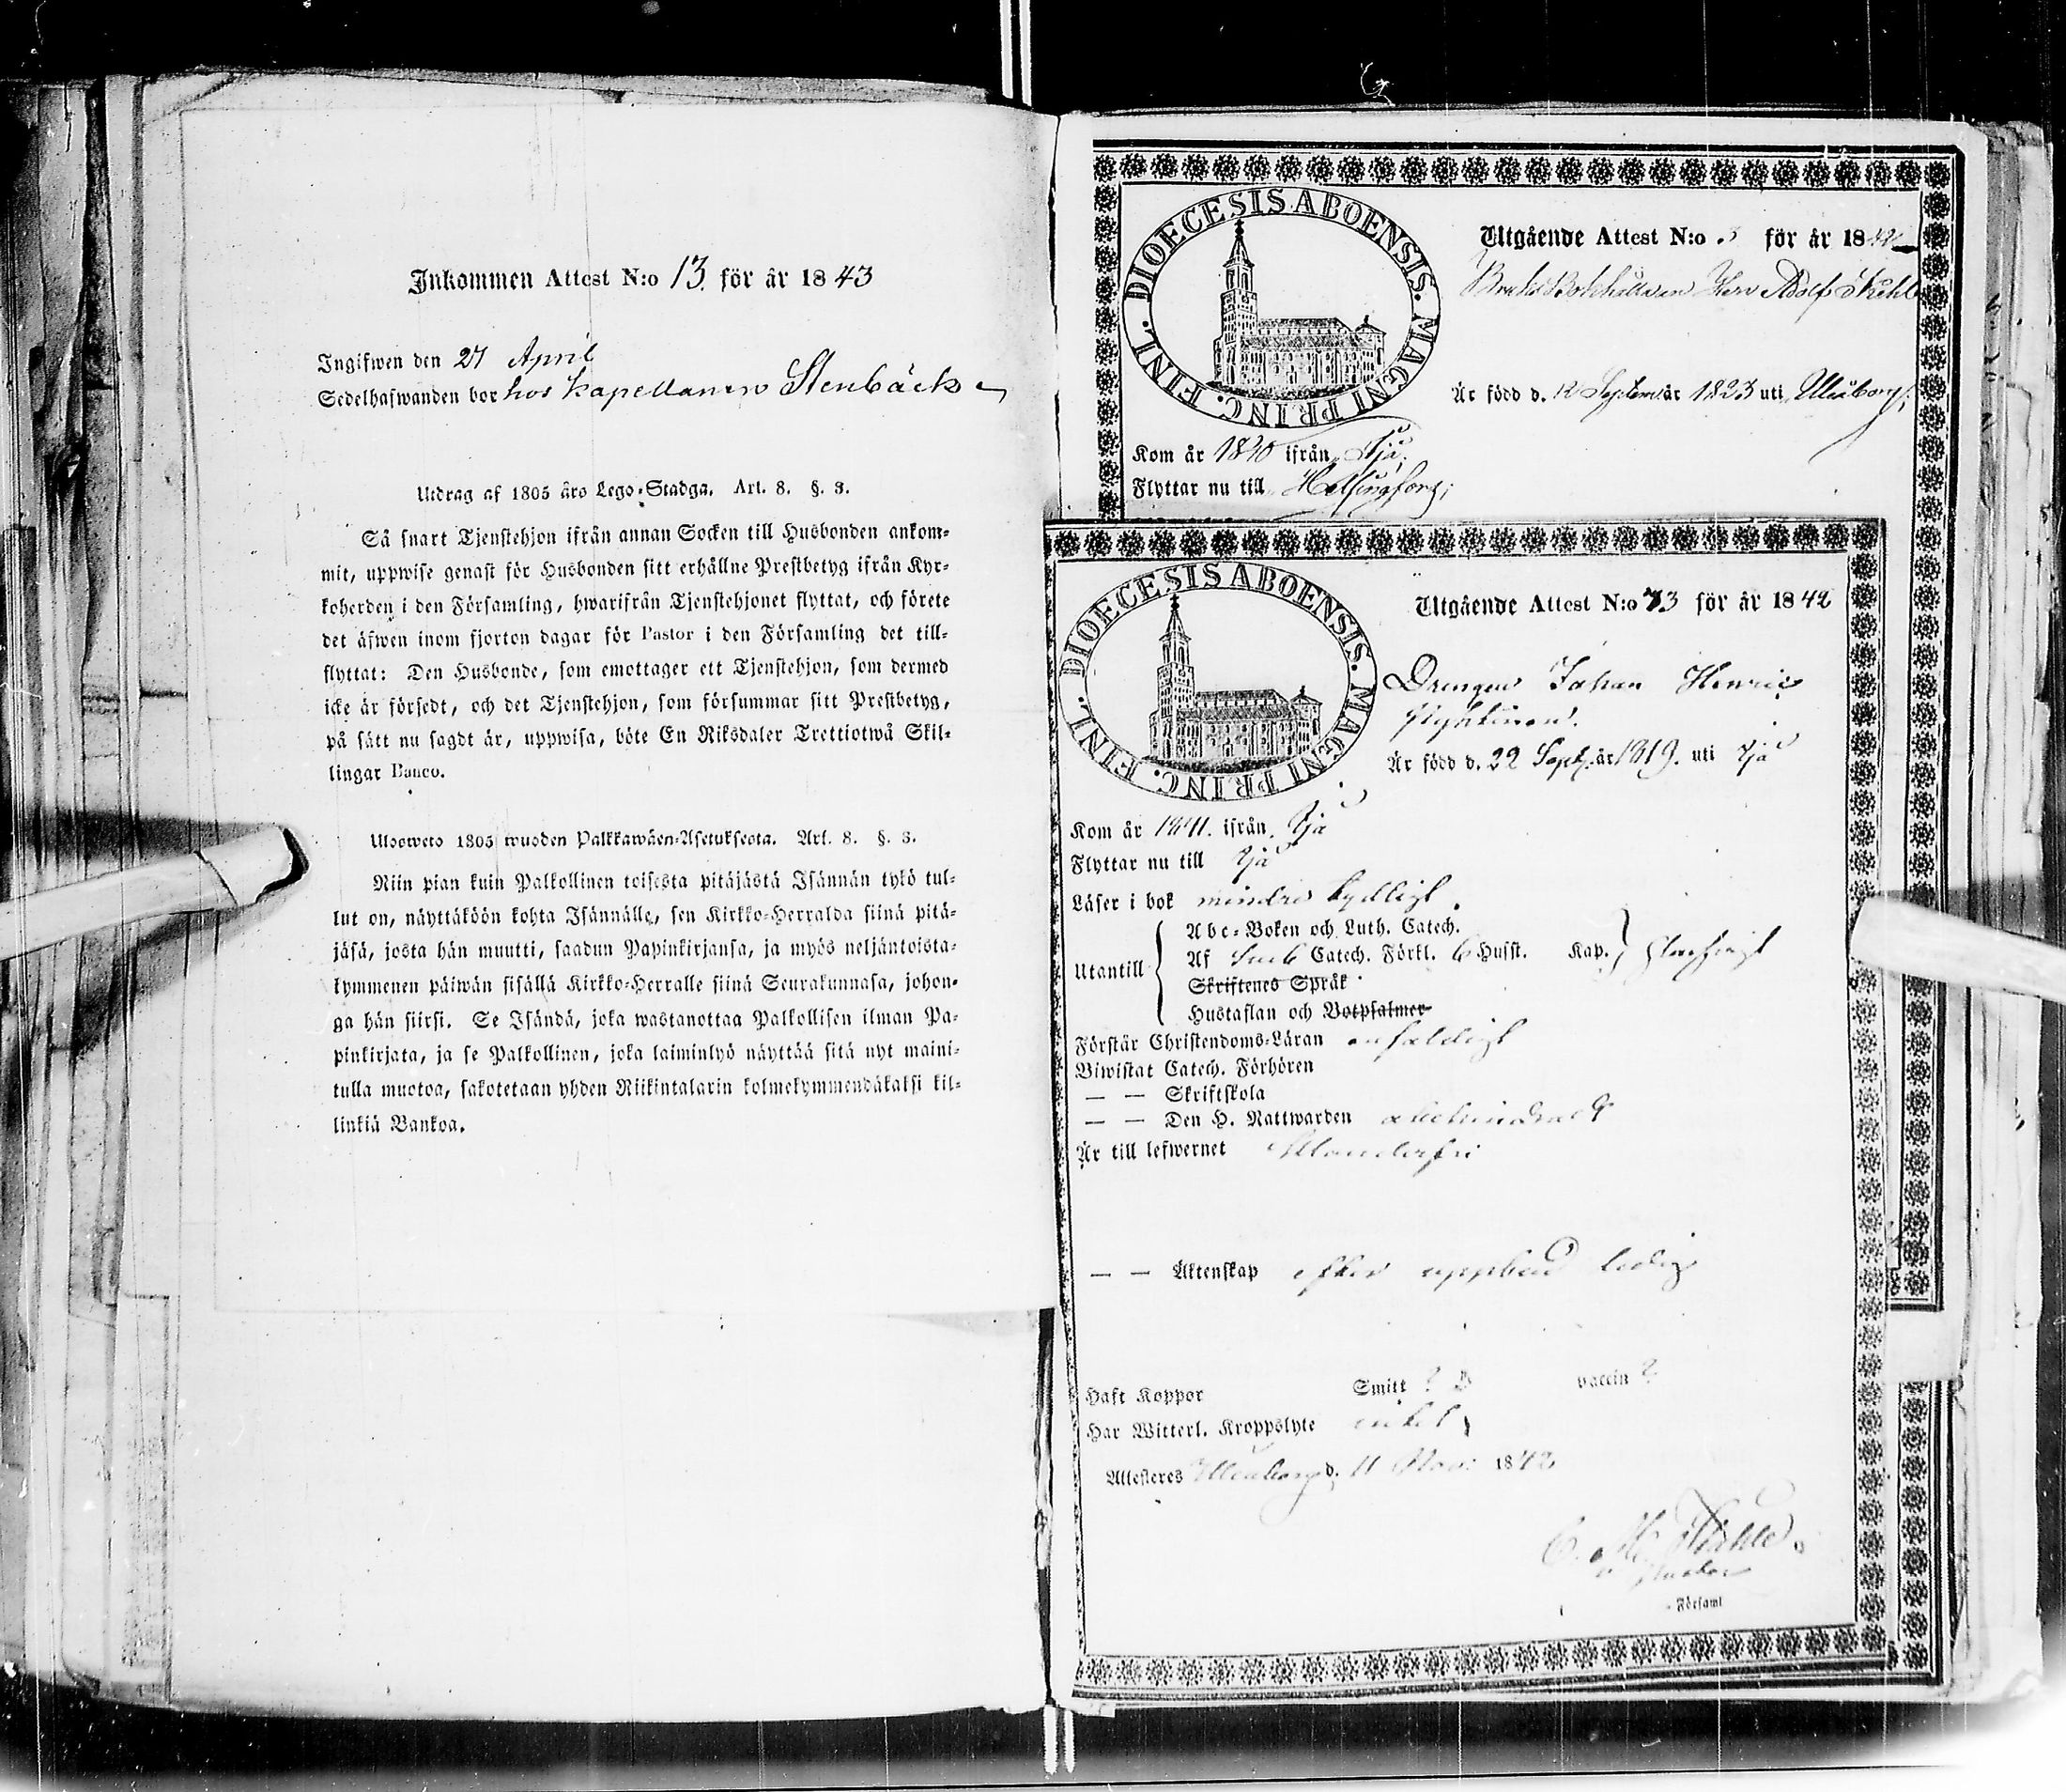 Inkommen Attest N:o 13. för år 1843
Ingifwen den 27 April
Sedelhafwanden bor hos Kapellanen Stenbäck
Utdrag af 1805 års Lego-Stadga. Art. 8. §. 3.
Så snart Tjenstehjon ifrån annan Socken till Husbonden ankom-
mit, uppwise genast för Husbonden sitt erhållne Prestbetyg ifrån Kyr-
koherden i den Församling, hwarifrån Tjenstehjonet flyttat, och förete
det äfwen inom fjorton dagar för Pastor i den Församling det till-
flyttat: Den Husbonde, som emottager ett Tjenstehjon, som dermed
icke är försedt, och det Tjenstehjon, som försummar sitt Prestbetyg,
på sätt nu sagdt är, uppwisa, böte En Riksdaler Trettiotwå Skil-
lingar Banco.
Ulosweto 1805 wuoden Palkkawäen-Asetuksesta. Art. 8. §. 3.
Niin pian kuin Palkollinen toisesta pitäjästä Isännän tykö tul-
lut on, näyttäköön kohta Isännälle, sen Kirkko-Herralda siinä pitä-
jäsä, josta hän muutti, saadun Papinkirjansa, ja myös neljäntoista-
kymmenen päiwän sisällä Kirkko-Herralle siinä Seurakunnasa, johon-
ga hän siirsi. Se Isändä, joka wastanottaa Palkollisen ilman Pa-
pinkirjata, ja se Palkollinen, joka laiminlyö näyttää sitä nyt maini-
tulla muotoa, sakotetaan yhden Riikintalarin kolmekymmendäkaksi kil-
linkiä Bankoa.
DIOECESIS ABOENSIS. MAGNI PRINC. FINL.
Utgående Attest N:o 3 för år 184
Bruks Bokhållaren Herr Adolf
Är född d. 12 September år 1823 uti Uleåborg;
Kom år 1840 ifrån Ijå;
Flyttar nu till Helsingfors;
DIOECESIS ABOENSIS. MAGNI PRINC. FINL.
Utgående Attest N:o 73 för år 1842
Drengen Johan Henric
Är född d. 22 Sept. år 1819. uti Ijå
Kom år 1841. ifrån Ijå
Flyttar nu till Ijå
Läser i bok mindre tydligt.
Utantill
Abc-Boken och Luth. Catech.
Af Catech. Förkl. 6 Husst. Kap.
Skriftenes Språk
Hustaflan och Botpsalmer
Förstår Christendoms-Läran enfaldigt
Biwistat Catech. Förhören
— — Skriftskola
— — Den H. Nattwarden obehindradt
Är till lefwernet klanderfri
— — Äktenskap efter uppbud ledig
Haft Koppor Smitt ? vaccin ?
Har Witterl. Kroppslyte intet
Attesteres Uleåborg d. 11 Nov: 1842
Församl